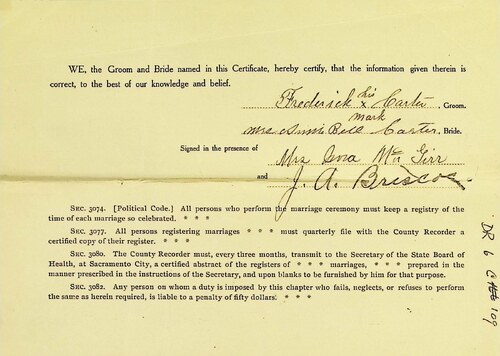 WE, the Groom and Bride named in this Certificate, hereby certify, that the information given therein is
correct, to the best of our knowledge and belief.
Frederick his x mark Carter, Groom.
Mrs Bell Carter, Bride.
Signed in the presence of
Mrs Mc Girr
and J. A. Briscoe
SEC. 3074. [Political Code.] All persons who perform the marriage ceremony must keep a registry of the
time of each marriage so celebrated. * * *
SEC. 3077. All persons registering marriages * * * must quarterly file with the County Recorder
a certified copy of their register. * * *
SEC. 3080. The County Recorder must, every three months, transmit to the Secretary of the State Board of
Health, at Sacramento City, a certified abstract of the registers of * * * marriages, * * * prepared in
the manner prescribed in the instructions of the Secretary, and upon blanks to be furnished by him for that purpose.
SEC. 3082. Any person on whom a duty is imposed by this chapter who fails, neglects, or refuses to perform
the same as herein required, is liable to a penalty of fifty dollars. * * *
DR 6 109